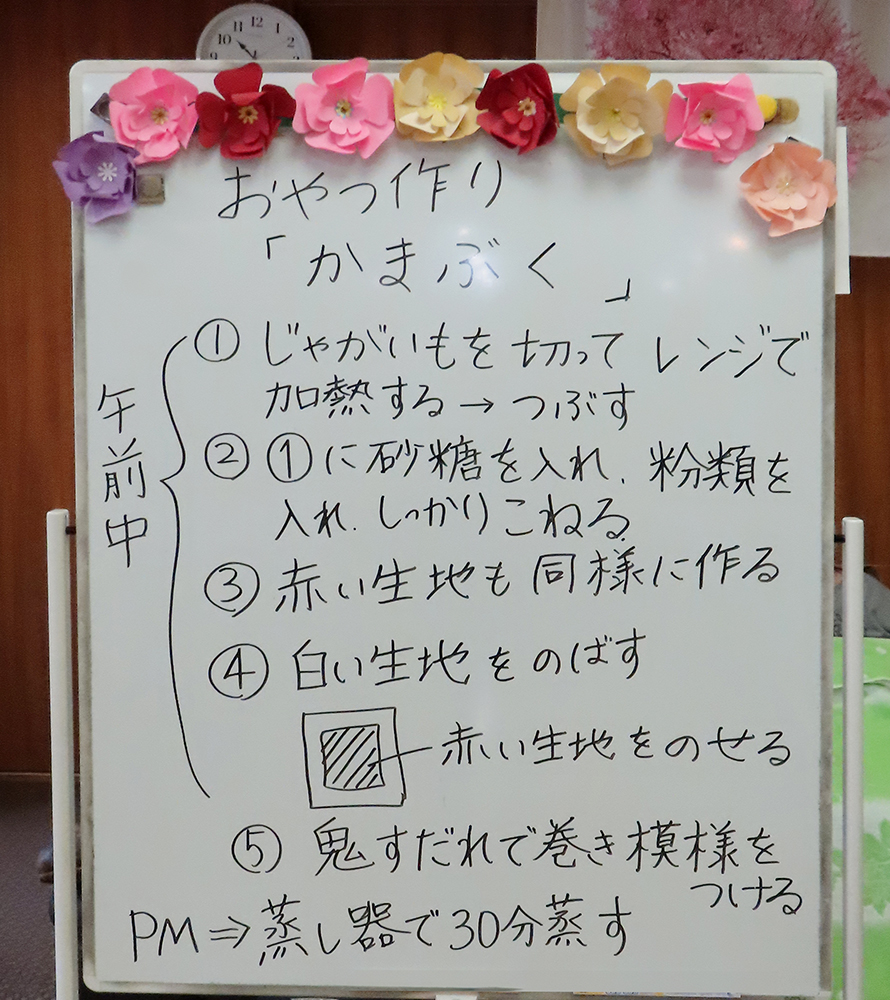 おやつ作り
「かまぶく」
午前中
① じゃがいもを切ってレンジで
加熱する→つぶす
② ①に砂糖を入れ、粉類を
入れ、しっかりこねる
③ 赤い生地も同様に作る
④ 白い生地をのばす
赤い生地をのせる
⑤ 鬼すだれで巻き模様を
つける
PM⇒蒸し器で30分蒸す